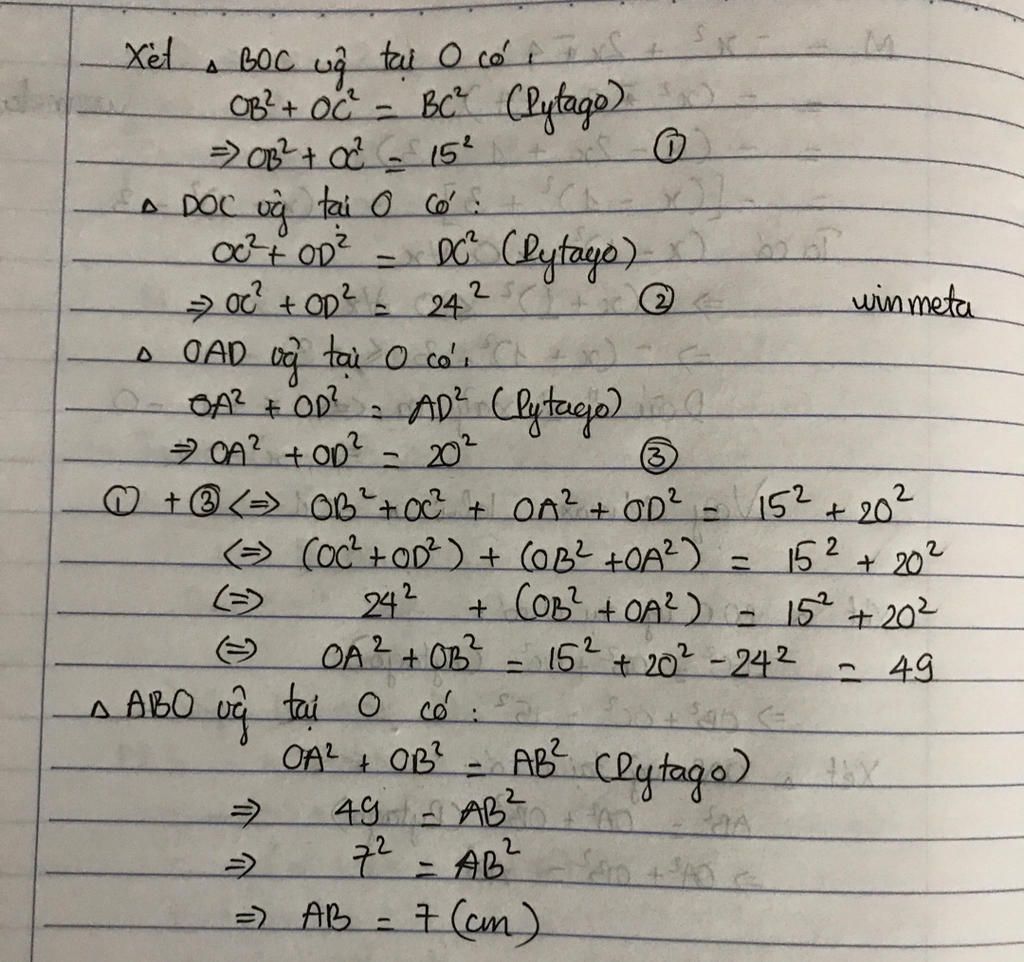 Xét △ BOC vg̃ tại O có:
OB² + OC² = BC² (Pytago)
⇒ OB² + OC² = 15² ①
△ DOC vg̃ tại O có:
OC² + OD² = DC² (Pytago)
⇒ OC² + OD² = 24² ② winmeta
△ OAD vg̃ tại O có:
OA² + OD² = AD² (Pytago)
⇒ OA² + OD² = 20² ③
① + ③ <=> OB² + OC² + OA² + OD² = 15² + 20²
<=> (OC² + OD²) + (OB² + OA²) = 15² + 20²
<=> 24² + (OB² + OA²) = 15² + 20²
<=> OA² + OB² = 15² + 20² - 24² = 49
△ ABO vg̃ tại O có:
OA² + OB² = AB² (Pytago)
⇒ 49 = AB²
⇒ 7² = AB²
⇒ AB = 7 (cm)